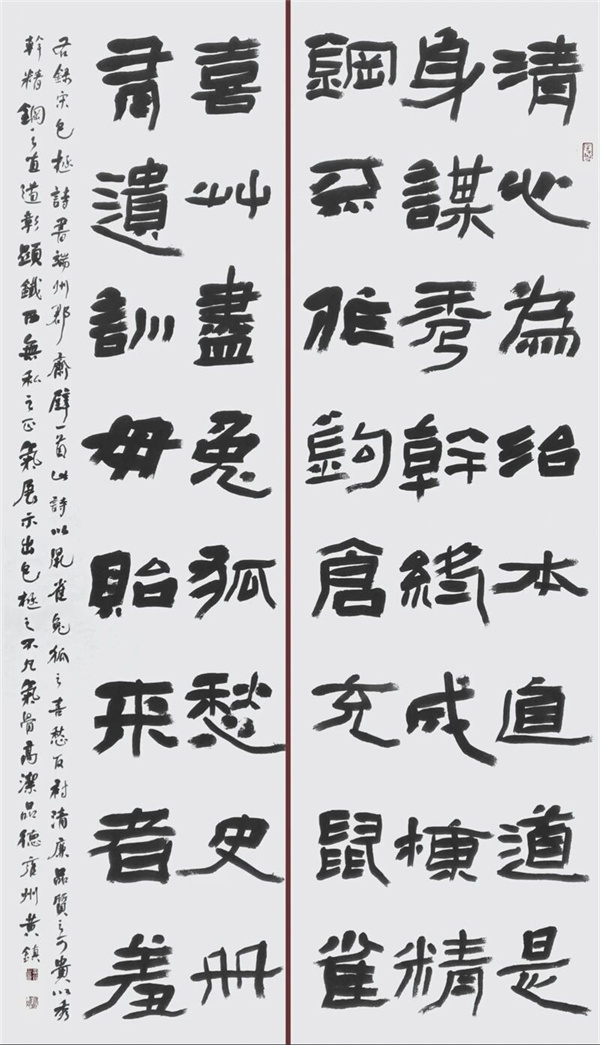 清心為治本直道是
身謀秀幹終成棟精
鋼不作鉤倉充鼠雀
喜艸盡兔狐愁史冊
有遺訓毋貽来者羞
右錄宋包拯詩書端州郡齋壁一首此詩以鼠雀兔狐之喜愁反襯清廉品質之可貴以秀
幹精鋼之直道彰顯鐵面無私之正氣展示出包拯之不凡氣骨高潔品德州黃鎮